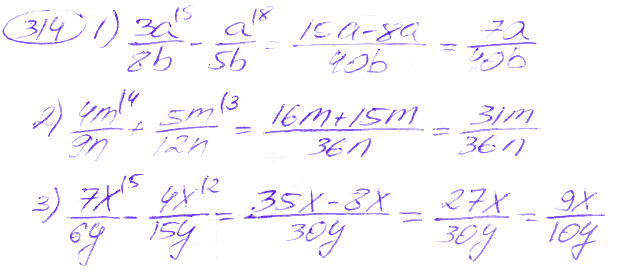 314 1) 3a\5/8b - a\8/5b = 15a-8a/40b = 7a/40b
2) 4m\4/9n + 5m\3/12n = 16m+15m/36n = 31m/36n
3) 7x\5/6y - 4x\2/15y = 35x-8x/30y = 27x/30y = 9x/10y